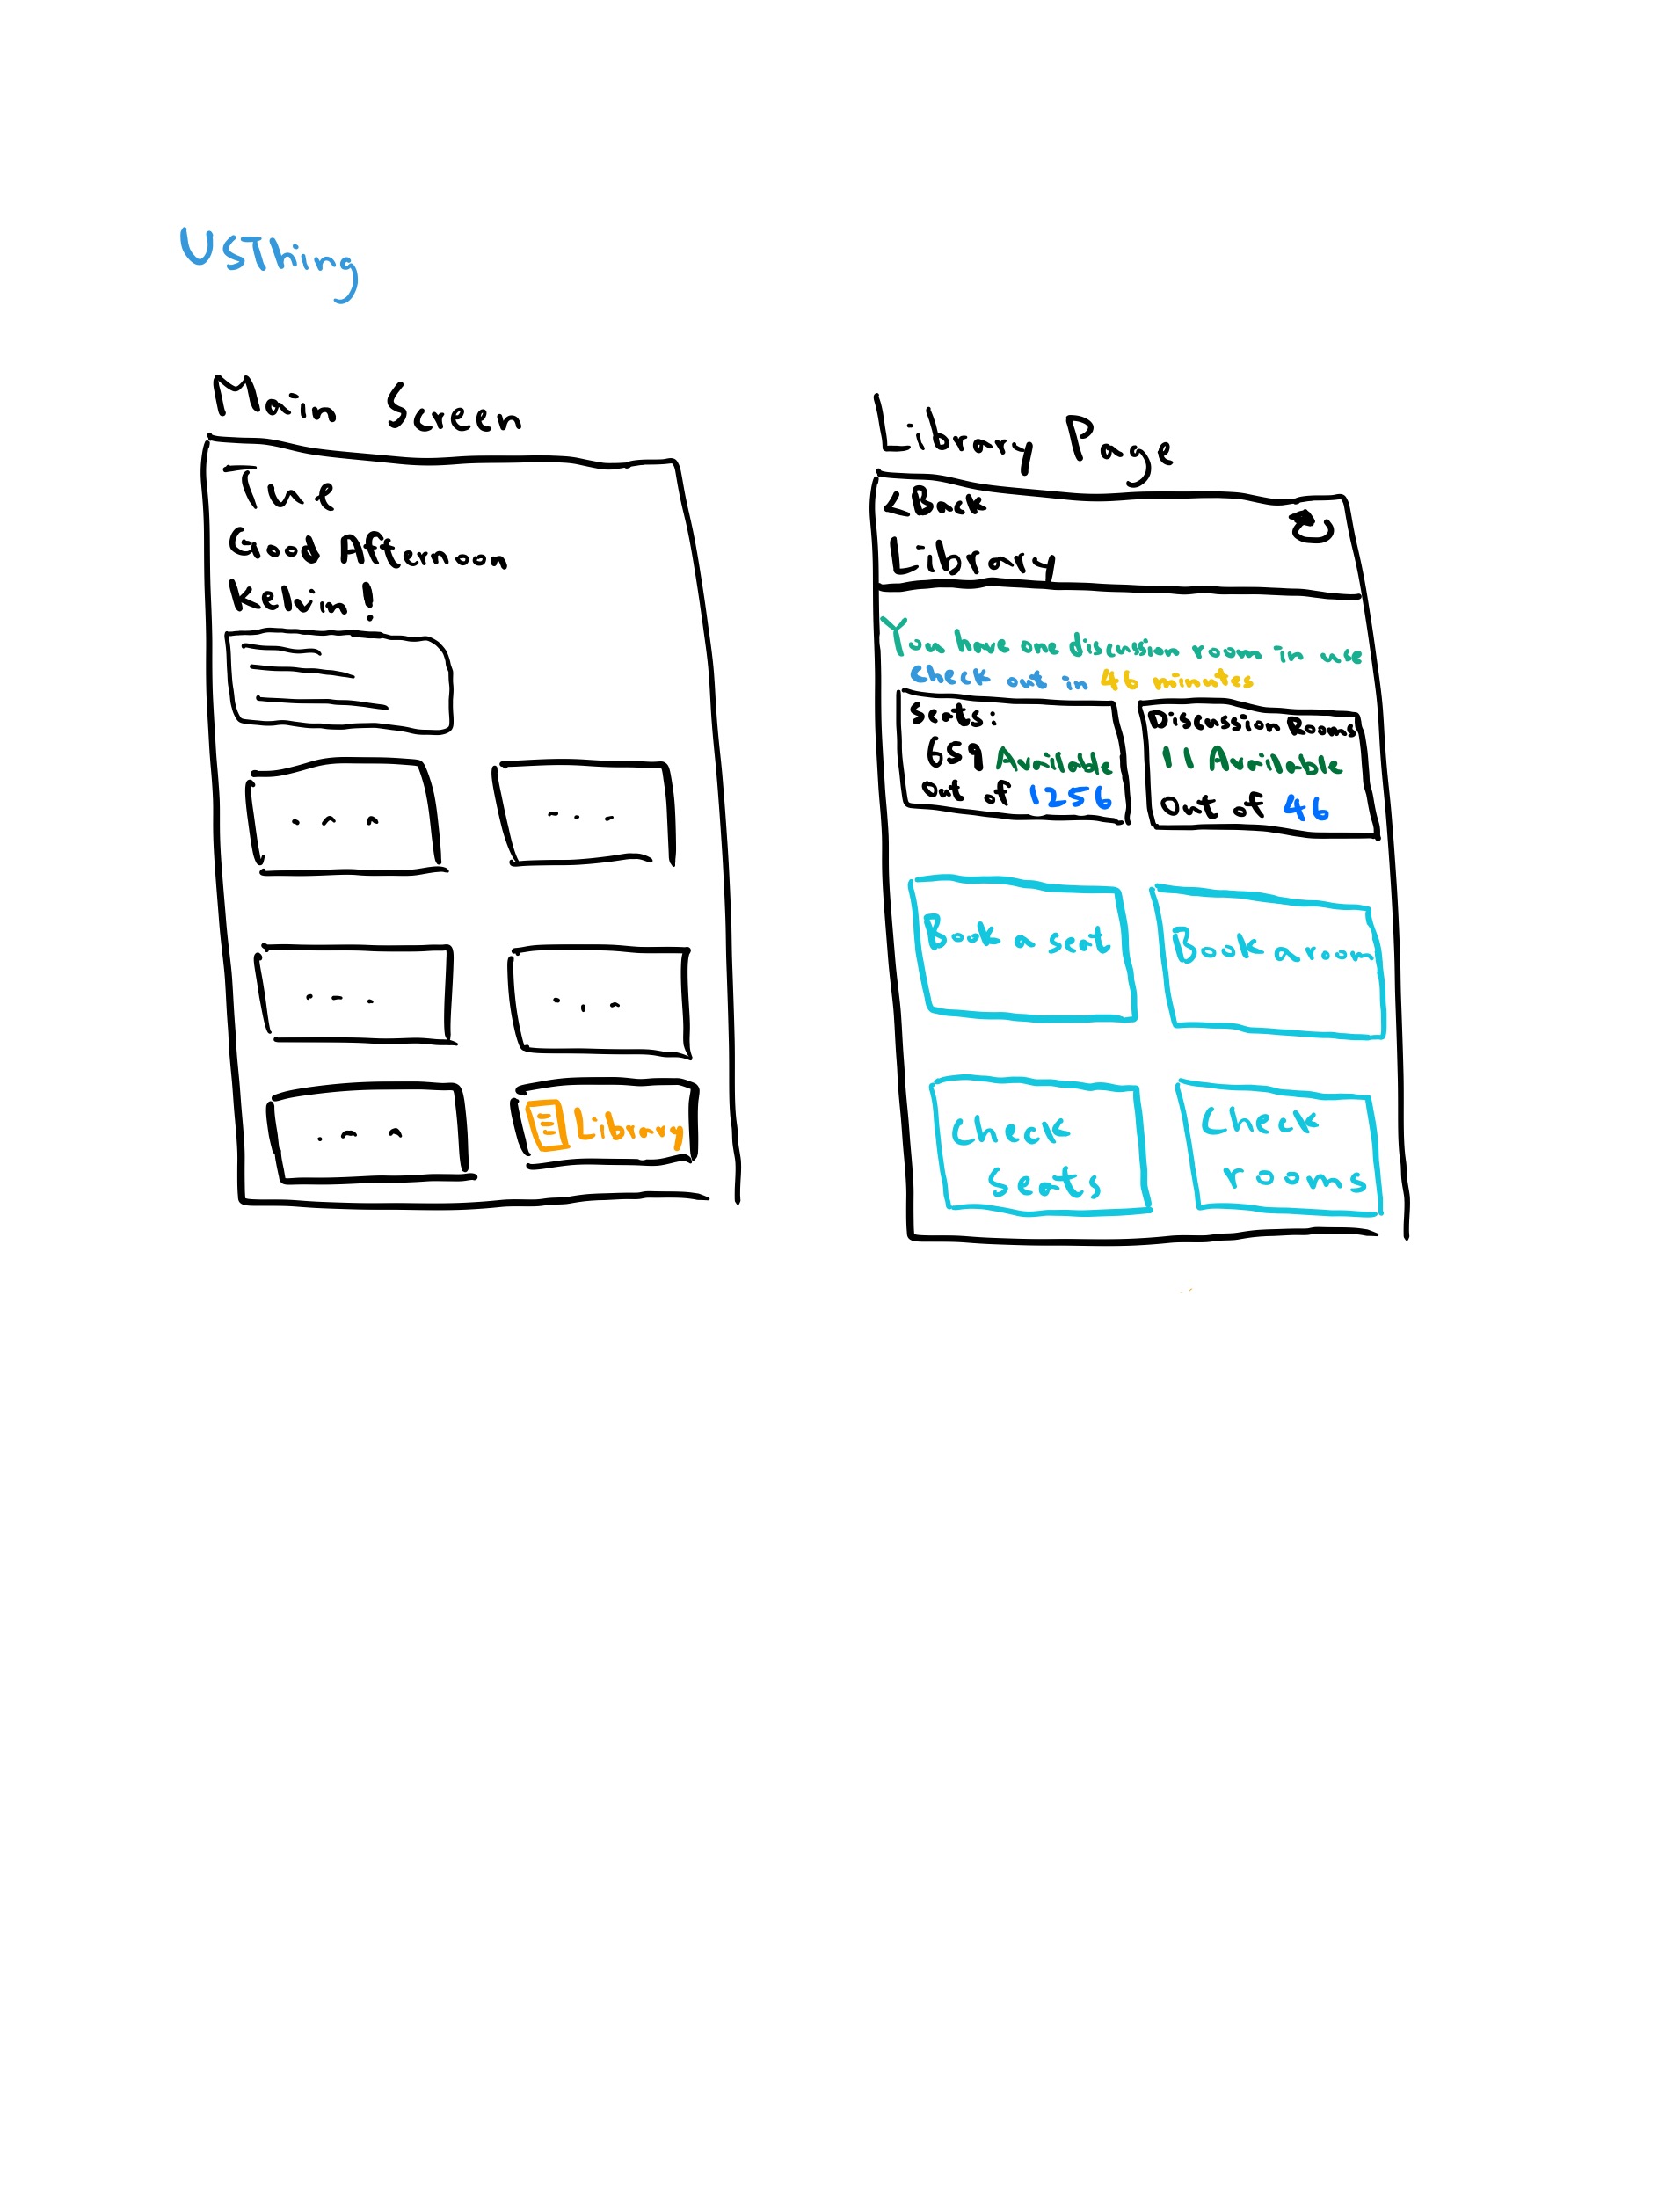 USThing
Main Screen
Time
Good Afternoon
Kelvin!
...
...
...
...
...
Library
Library Page
<Back
Library
You have one discussion room in use
check out in 46 minutes
Seats:
659 Available
Out of 1256
Discussion Rooms
11 Available
Out of 46
Book a seat
Book a room
Check
seats
Check
rooms